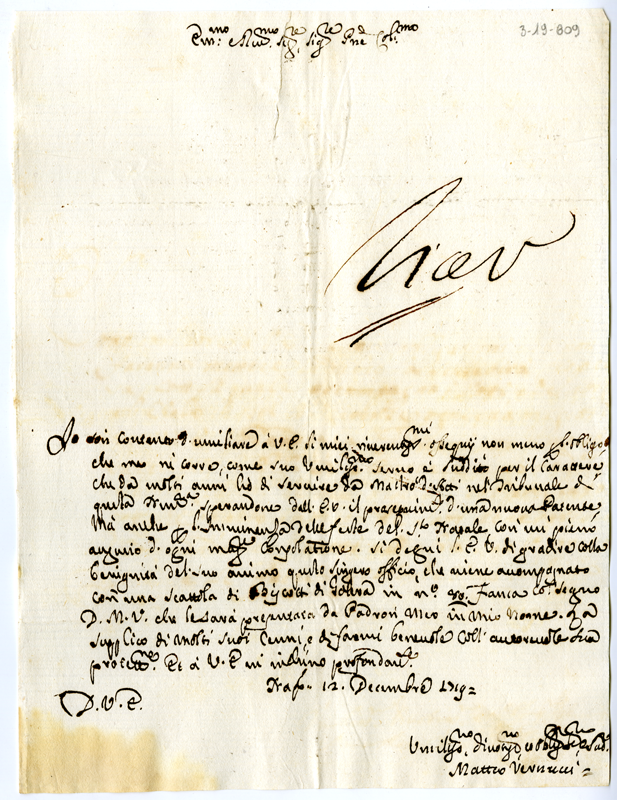 3-19-809
Em:mo e Rev:mo Sig:re Sig:re P.ne Col:mo
Io son contento d'umiliare à V. E. li miei riverentmi ossequij non meno p. obligo
che me ne corre, come suo Umilissmo servo e suddito per il Carattere
che da molti anni hò di servire da Mastro d'atti nel Tribunale di
questa Nuntra sperandone dall'E. V. il proseguimto d'una nuova Patente
Mà anche p. l'imminenza delle feste del Sto Natale con un pieno
augurio d'ogni magre Consolatione. Si degni l'E. V. di gradire colla
benignità del suo animo questo sincero officio, che viene accompagnato
con una scattola di in no co'l segno
D. M. V. che le sarà presentata da Padron Meo in mio Nome. e la
supplico di molti suoi Cenni, e di farmi benevole coll' autorevole sua
protettne. Et à V. E. mi inchino profondamte
Nap. 12. Decembre 1719=
D. V. E.
Umilissmo divotmo et obligmo
Matteo Vernucci=